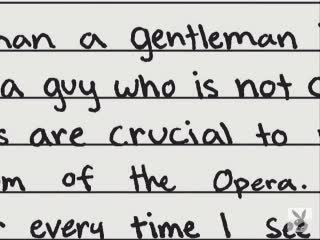 man a gentleman
a guy who is not
s are crucial to
m of the Opera.
r every time I see